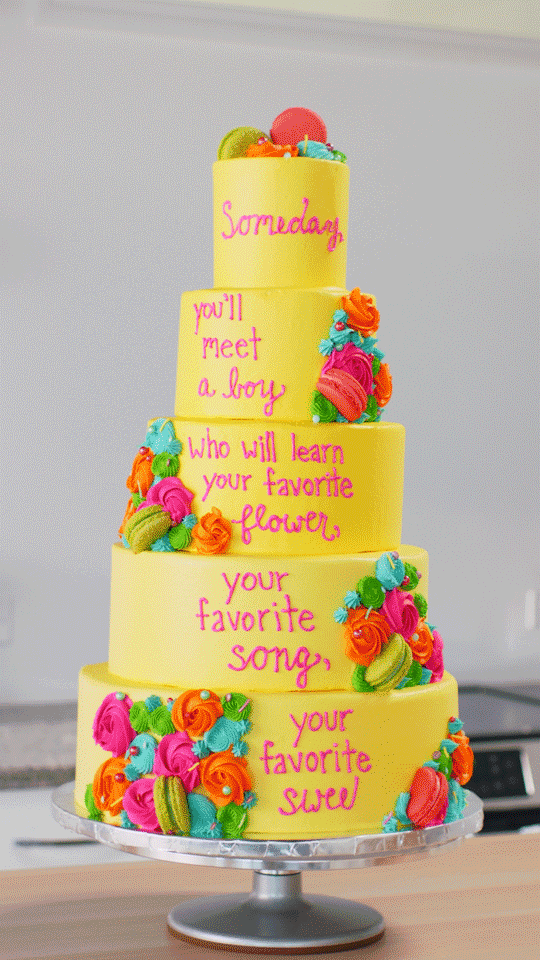 Someday,
you'll
meet
a boy
who will learn
your favorite
flower,
your
favorite
song,
your
favorite